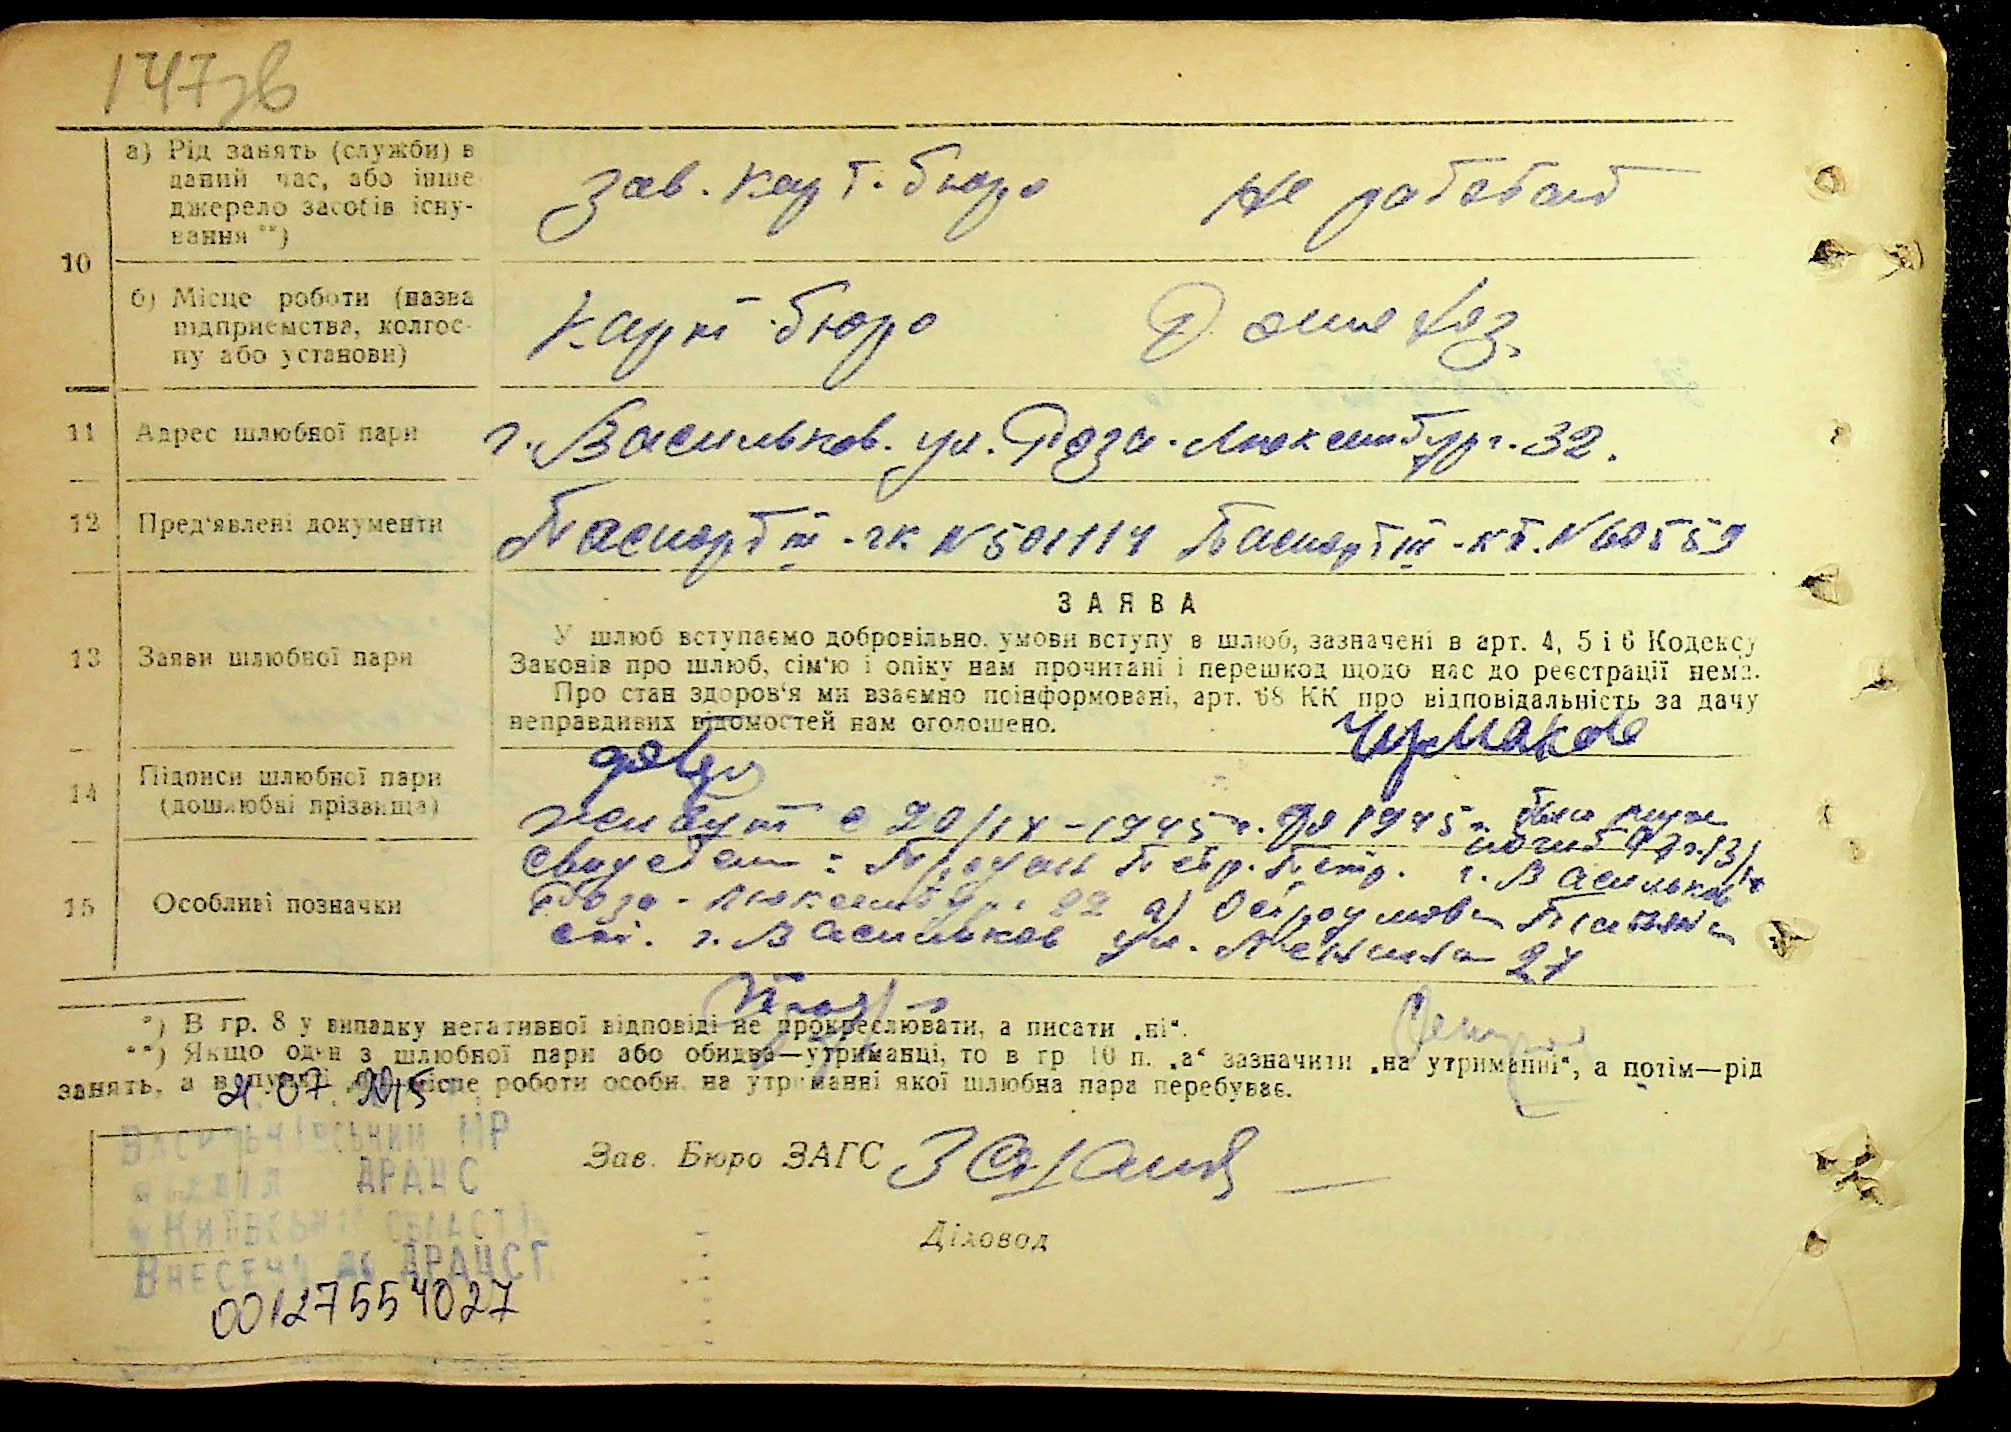 147зв
10
а) Рід занять (служби) в
даний час, або інше
джерело засобів існу-
вання **)
зав. карт. бюро
не работает
б) Місце роботи (назва
підприємства, колгос-
пу або установи)
Карт. бюро
Домохоз.
11 Адрес шлюбної пари
г. Васильков. ул. Роза-Люксембург. 32.
12 Пред'явлені документи
Паспорт ІІІ-чк N 501114 Паспорт ІІІ-кт. N 60559
ЗАЯВА
13 Заяви шлюбної пари
У шлюб вступаємо добровільно, умови вступу в шлюб, зазначені в арт. 4, 5 і 6 Кодексу
Законів про шлюб, сім'ю і опіку нам прочитані і перешкод щодо нас до реєстрації нема.
Про стан здоров'я ми взаємно поінформовані, арт. 68 КК про відповідальність за дачу
неправдивих відомостей нам оголошено.
14 Підписи шлюбної пари
(дошлюбні прізвища)
Чермакова
живут с 20/ІХ-1945 г. До 1945 г. был муж
погиб
свидетели: Продан Петр. Петр. г. Васильков
15 Особливі позначки
Роза-Люксембург 22 2) Остроумова
г. Васильков ул. Ленина 27
*) В гр. 8 у випадку негативної відповіді не прокреслювати, а писати „ні“.
**) Якщо оден з шлюбної пари або обидва—утриманці, то в гр 10 п. „а“ зазначити „на утриманні“, а потім—рід
занять, а в пункті місце роботи особи, на утриманні якої шлюбна пара перебуває.
21.07.2015
Васильківський МР
відділ ДРАЦС
у Київській області
Внесено до ДРАЦСГ
00127554027
Зав. Бюро ЗАГС
Діловод